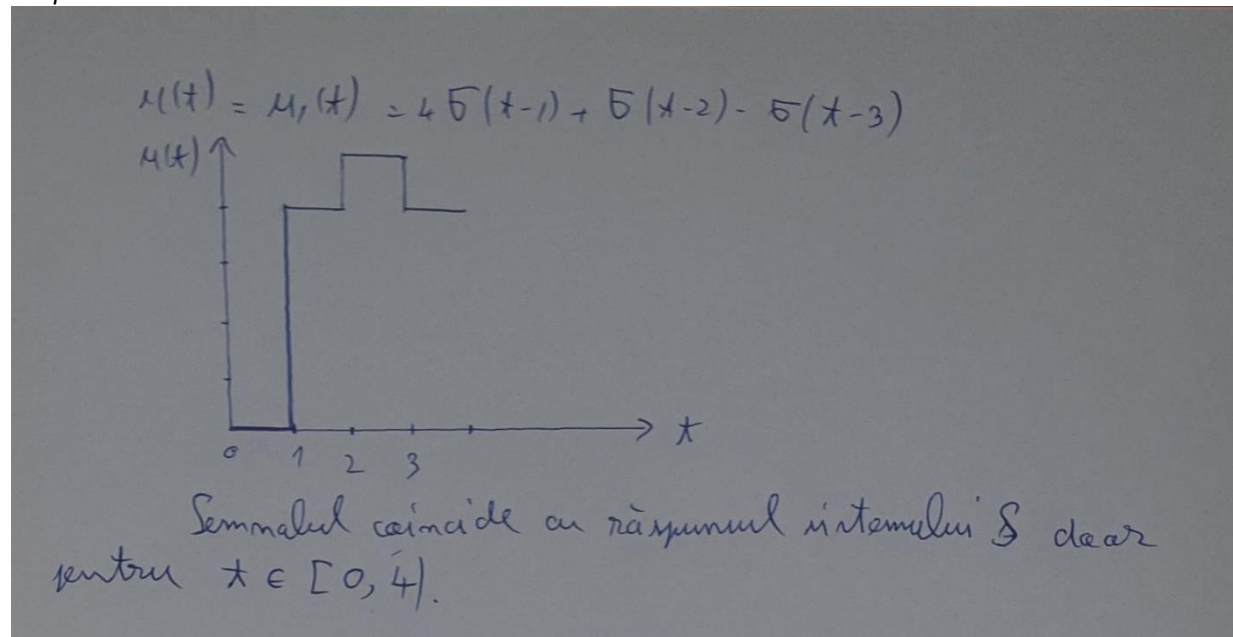 u(t) = u₁(t) = 4 σ(t-1) + σ(t-2) - σ(t-3)
u(t)
t
0 1 2 3
Semnalul coincide cu răspunsul sistemului S doar
pentru t ∈ [0, 4).